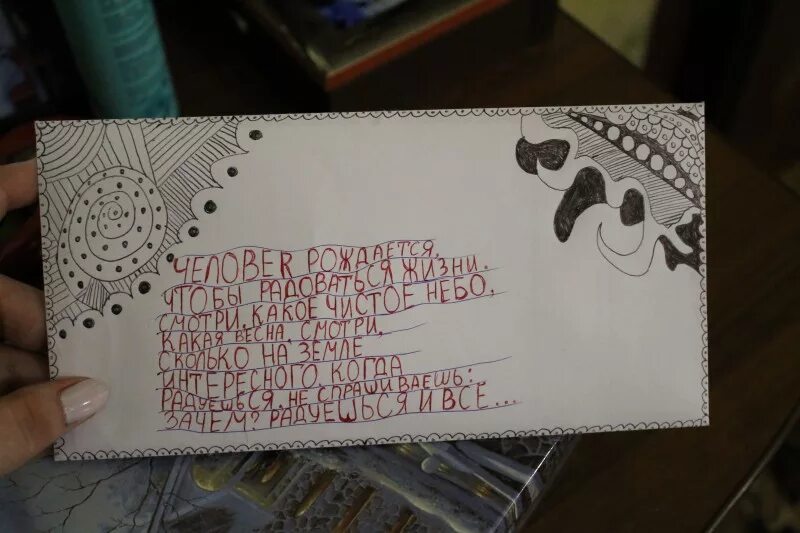 ЧЕЛОВЕК РОЖДАЕТСЯ,
ЧТОБЫ РАДОВАТЬСЯ ЖИЗНИ.
СМОТРИ, КАКОЕ ЧИСТОЕ НЕБО,
КАКАЯ ВЕСНА, СМОТРИ,
СКОЛЬКО НА ЗЕМЛЕ
ИНТЕРЕСНОГО. КОГДА
РАДУЕШЬСЯ, НЕ СПРАШИВАЕШЬ:
ЗАЧЕМ? РАДУЕШЬСЯ И ВСЁ...